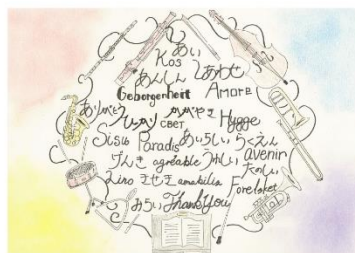 あい
Kos
あんしん しあわせ
Geborgenheit Amore
ありがとう かがやき
свет Hygge
Sisu Paradis あいらしい らくえん
げんき agréable うれしい avenir
たのしい
Kiro きせき amabilia Forelsket
みらい Thank You